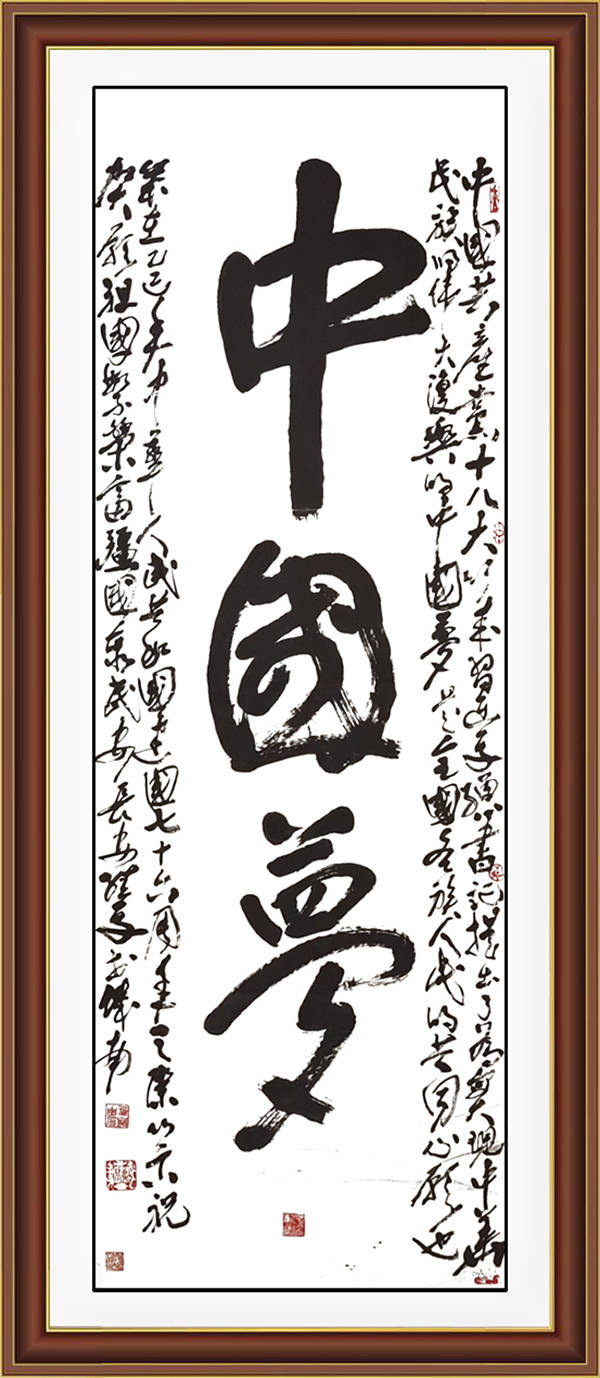 中國共產黨十八大以来習近平總書記提出了為實現中華
民族的偉大復興的中國夢是全國各族人民的共同心願也
中國夢
歲在乙巳年中華人民共和國建國七十六周年之際以示祝
賀願祖國繁榮富彊國泰民安長安城南